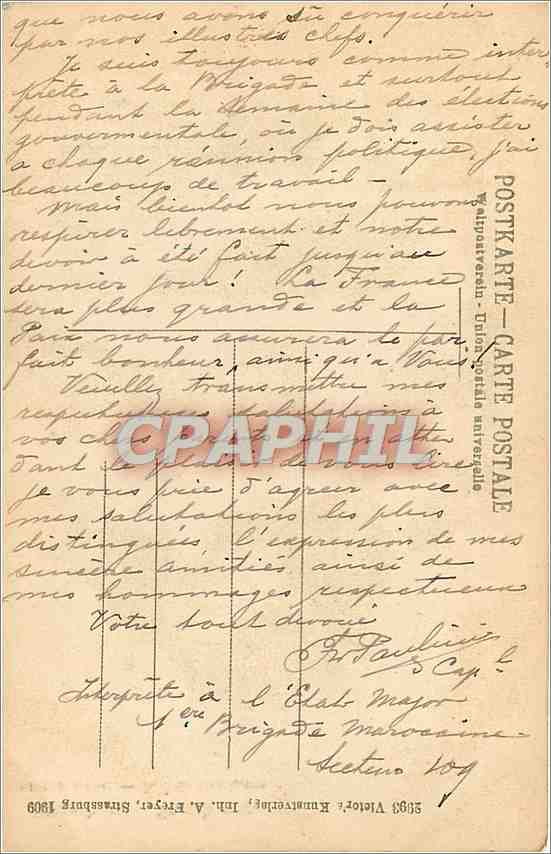 que nous avons su conquérir
par nos illustres chefs.
Je suis toujours comme inter-
prète à la Brigade et surtout
pendant la semaine des élections
gouvermentale, où je dois assister
a chaque réunnion politique, j'ai
beaucoup de travail -
Mais bientot nous pouvons
respirer librement et notre
devoir à été fait jusqu'au
dernier jour! La France
sera plus grande et la
Paix nous assurera le par-
fait bonheur, ainsi qu'a Vous!
Veuillez transmettre mes
respectueuses salutations à
vos chers parents et en atten
dant le plaisir de vous lire
je vous prie d'agreer avec
mes salutations les plus
distinguées l'expression de mes
sincère amitiés ainsi de
mes hommages respectueux
Votre tout devoué
Capl
Interprète à l'État Major
1ere Brigade Marocaine -
Secteur 109
POSTKARTE — CARTE POSTALE
Weltpostverein - Union postale universelle
2993 Victor's Kunstverlag, Inh. A. Freyer, Strassburg 1909
CPAPHIL